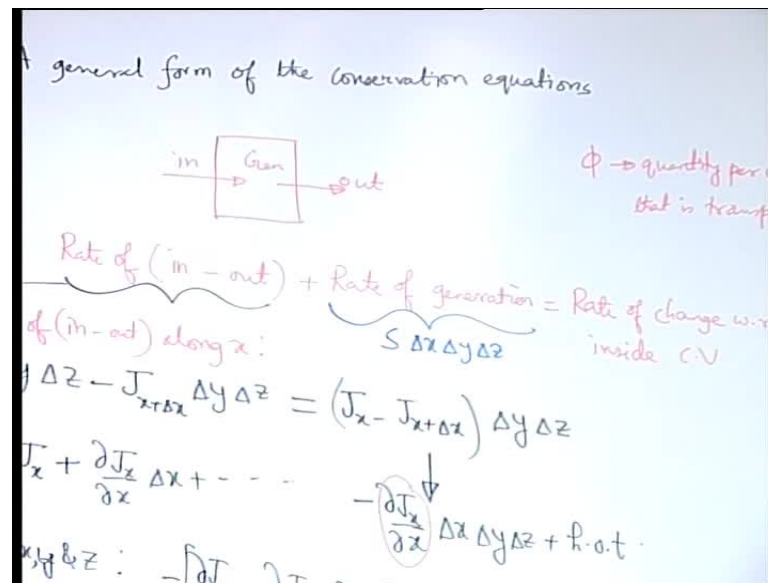 A general form of the conservation equations
in Gen out
ϕ → quantity per
that is transp
Rate of (in - out) + Rate of generation = Rate of change w.r
of (in-out) along x: S Δx Δy Δz inside C.V
y Δz - J_{x+Δx} Δy Δz = (J_x - J_{x+Δx}) Δy Δz
J_x + ∂J_x/∂x Δx + - - - -
-∂J_x/∂x Δx Δy Δz + h.o.t.
x, y & z : -[∂J